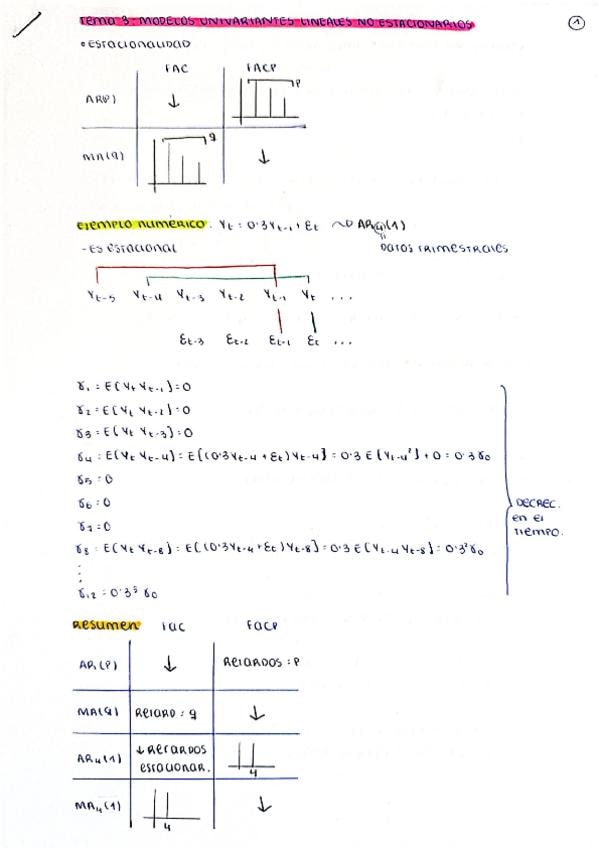 Tema 3: MODELOS UNIVARIANTES LINEALES NO ESTACIONARIOS
1
• ESTACIONALIDAD
FAC FACP
AR(p) ↓ p
MA(q) q ↓
EJEMPLO NUMÉRICO: Yt = 0'3Yt-1 + Et ~D AR4(1)
- ES ESTACIONAL DATOS TRIMESTRALES
Yt-5 Yt-4 Yt-3 Yt-2 Yt-1 Yt ...
Et-3 Et-2 Et-1 Et ...
γ1 = E(Yt Yt-1) = 0
γ2 = E(Yt Yt-2) = 0
γ3 = E(Yt Yt-3) = 0
γ4 = E(Yt Yt-4) = E[(0'3Yt-4 + Et) Yt-4] = 0'3 E[Yt-4²] + 0 = 0'3 γ0
γ5 = 0
γ6 = 0
γ7 = 0
DECREC. en el TIEMPO.
γ8 = E(Yt Yt-8) = E[(0'3Yt-4 + Et) Yt-8] = 0'3 E(Yt-4 Yt-8) = 0'3² γ0
⋮
γ12 = 0'3³ γ0
RESUMEN FAC FACP
AR(P) ↓ RETARDOS: P
MA(q) RETARD: q ↓
AR4(1) ↓ RETARDOS ESTACIONAR. 4
MA4(1) 4 ↓